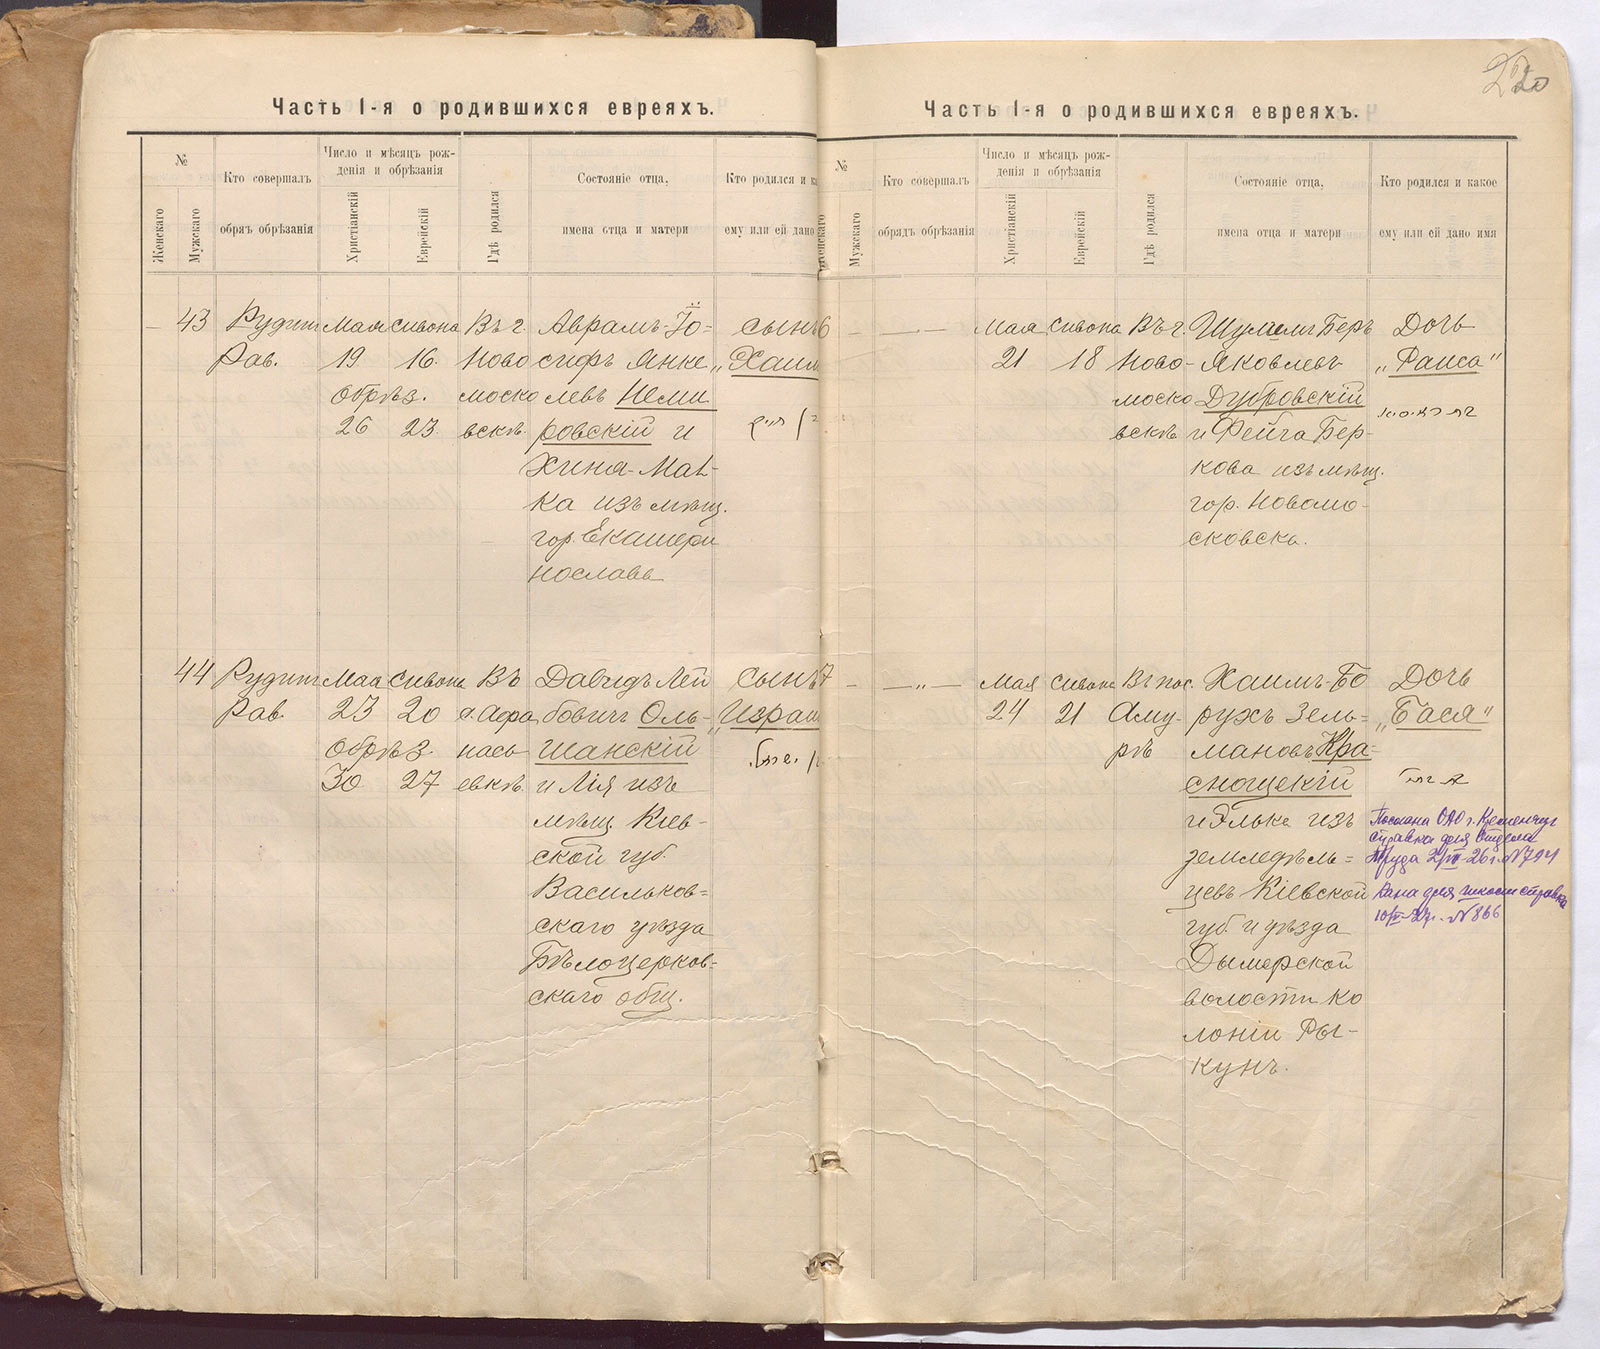 Часть I-я о родившихся евреяхъ.
№
Женскаго
Мужскаго
Кто совершалъ
обрядъ обрѣзанія
Число и мѣсяцъ рож-
денія и обрѣзанія
Христіанскій
Еврейскій
Гдѣ родился
Состояніе отца,
имена отца и матери
Кто родился и ка
ему или ей дано
43
Рудин
Рав.
Мая
19
Обрѣз.
26
Сивона
16.
23.
Въ г.
Ново
моско
вскѣ.
Аврамъ-Іо=
сифъ Янке
левъ Неми
ровскій и
Хиня-Мал-
ка изъ мѣщ.
гор. Екатери
нославъ
сынъ
„Хаим
44
Рудин
Рав.
Мая
23
Обрѣз.
30
Сивона
20
27
Въ
с. Афа
нась
евкѣ.
Давидъ Лей
бовичъ Оль-
шанскій
и Лія изъ
мѣщ. Кіев-
ской губ.
Васильков=
скаго уѣзда
Бѣлоцерков=
скаго общ.
сынъ
„Израи
220
Часть I-я о родившихся евреяхъ.
№
Женскаго
Мужскаго
Кто совершалъ
обрядъ обрѣзанія
Число и мѣсяцъ рож-
денія и обрѣзанія
Христіанскій
Еврейскій
Гдѣ родился
Состояніе отца,
имена отца и матери
Кто родился и какое
ему или ей дано имя
6
Мая
21
Сивона
18
Въ г.
Ново-
моско
вскѣ
Шулимъ Беръ
Яковлевъ
Дубровскій
и Фейга Бер-
кова изъ мѣщ.
гор. Новомо-
сковска.
Дочь
„Раиса“
7
Мая
24
Сивона
21
Въ пос.
Аму-
рѣ
Хаимъ-Бо
рухъ Зель=
мановъ Кра-
сноцекій
и Элька изъ
земледѣль=
цевъ Кіевской
губ. и уѣзда
Дымерской
волости ко
лоніи Ры-
кунъ.
Дочь
„Бася“
Послана ОАО г. Кременчуг
справка для Отдела
Труда
для справка
№ 866